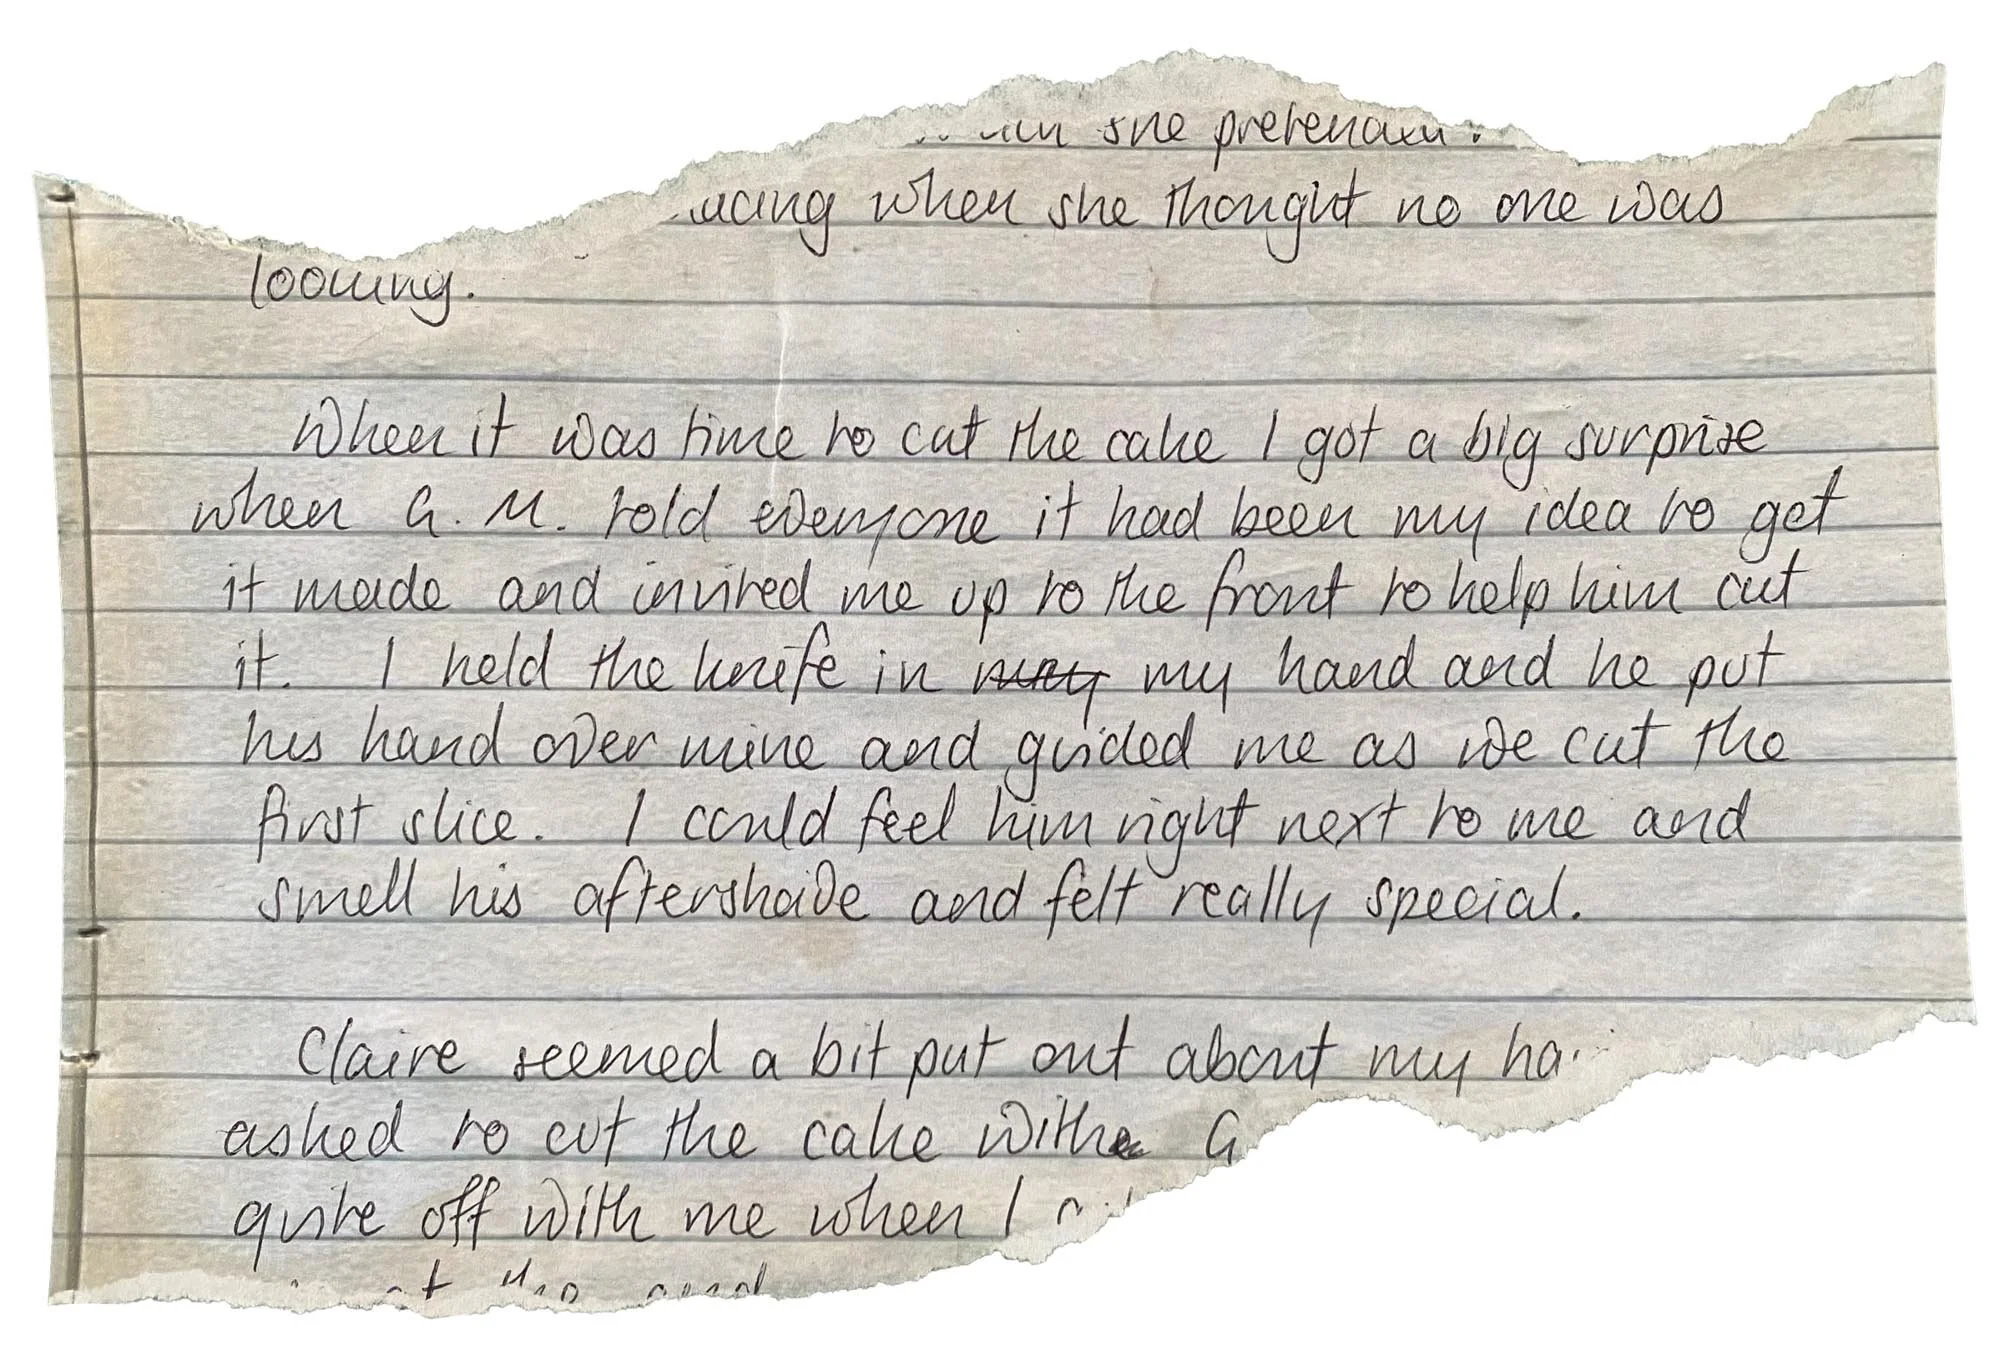 she
when she thought no one was
looking.
When it was time to cut the cake I got a big surprise
when G. M. told everyone it had been my idea to get
it made and invited me up to the front to help him cut
it. I held the knife in my hand and he put
his hand over mine and guided me as we cut the
first slice. I could feel him right next to me and
smell his aftershave and felt really special.
Claire seemed a bit put out about my
asked to cut the cake with G
quite off with me when I